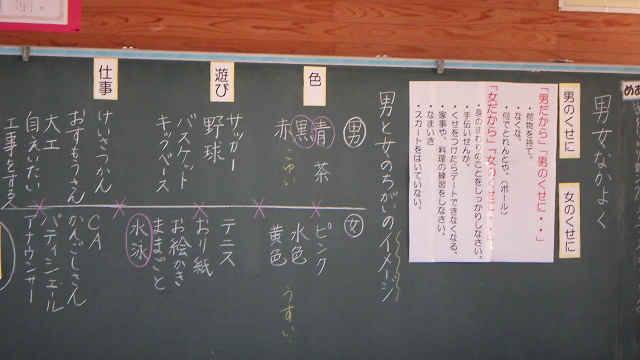 めあ
男女なかよく
男のくせに
女のくせに
「男だから」「男のくせに・・」
・荷物を持て。
・なくな。
・何でとれんとや。(ボール)
「女だから」「女のくせに・・」
・身のまわりのことをしっかりしなさい。
・手伝いせんか。
・くせをつけたらデートできなくなる。
・家事や、料理の練習をしなさい。
・なまいき
・スカートをはいていない。
男と女のちがいのイメージ
男
女
色
青 茶
黒
赤 こゆい
ピンク
水色
黄色 うすい
遊び
サッカー
野球
バスケット
キックベース
テニス
おり紙
お絵かき
ままごと
水泳
仕事
けいさつかん
おすもうさん
大工
自えいたい
工事をする人
CA
かんごしさん
パティシエール
アナウンサー